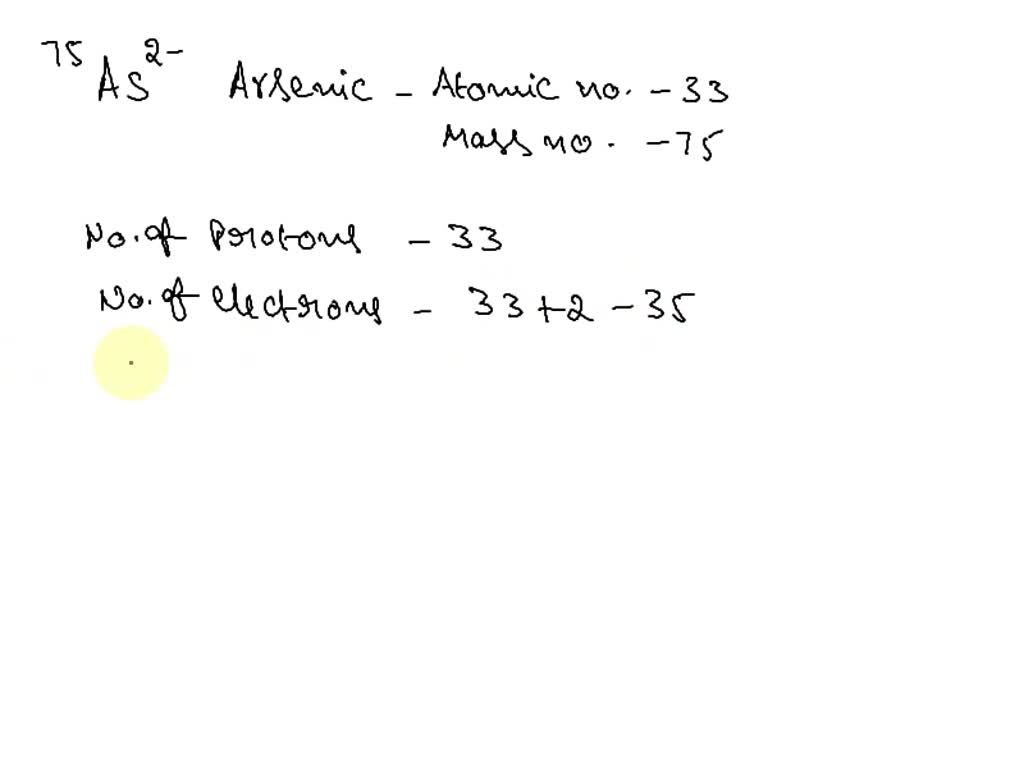 75As2- Arsenic - Atomic no. - 33
Mass no. - 75
No. of Protons - 33
No. of electrons - 33 + 2 - 35